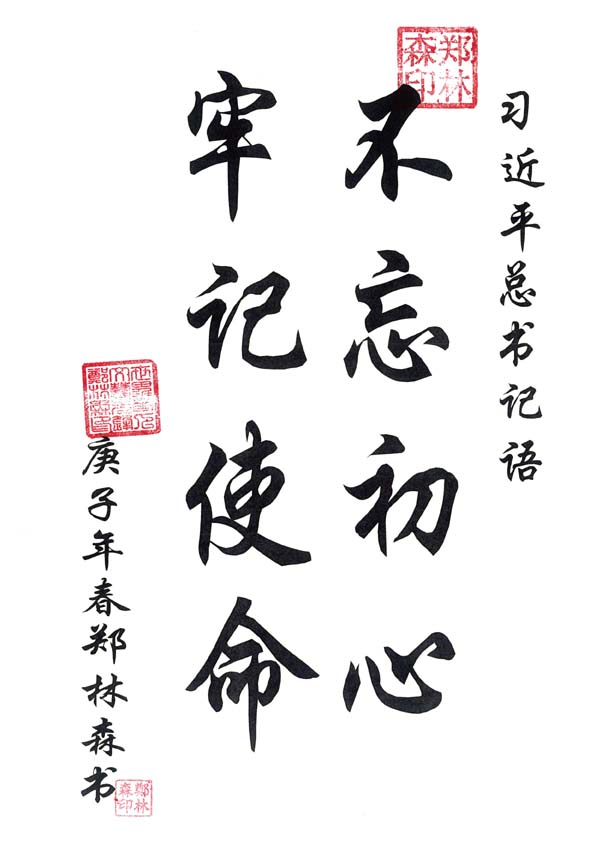 习近平总书记语
郑林森印
不忘初心
牢记使命
庚子年春郑林森书
鄭林森印